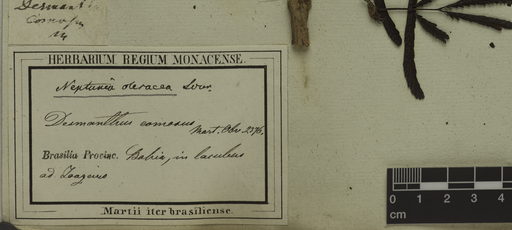 Desmant
comosus
M
HERBARIUM REGIUM MONACENSE.
Neptunia oleracea Lour
Desmanthus comosus
Mart. Obs. 2376.
Brasilia Provinc. Bahia, in lacubus
ad Joazeiro
Martii iter brasiliense.
0 1 2 3 4
cm